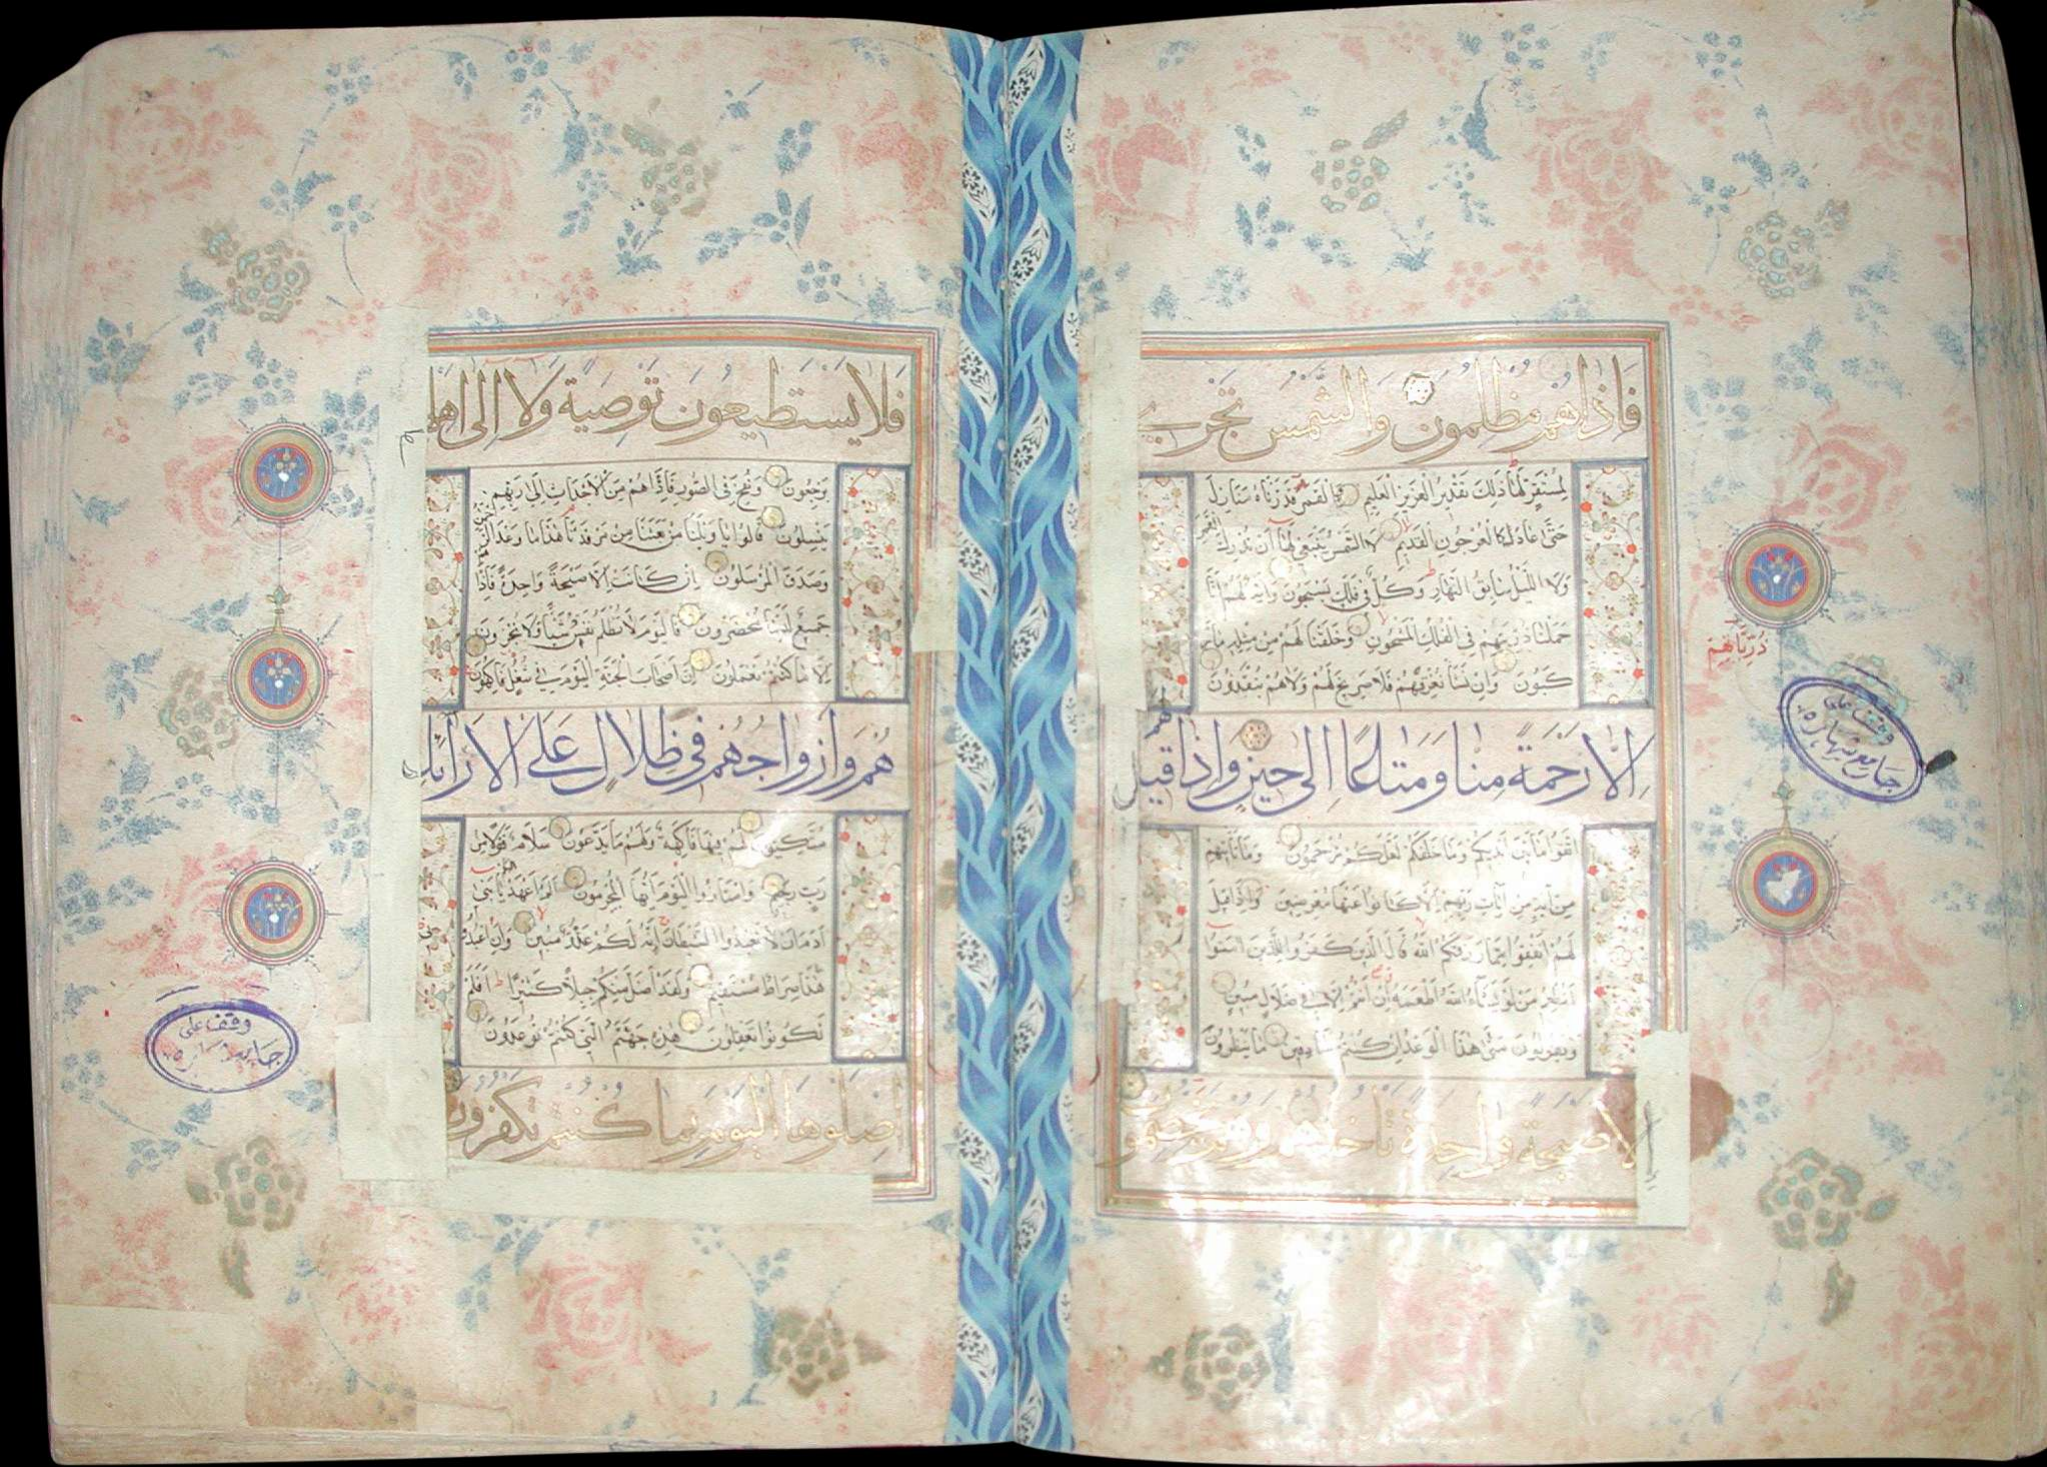 فَاِذَاهُمْ مُظْلِمُونَ وَالشَّمْسُ تَجْرِي
لِمُسْتَقَرٍّ لَهَا ذَلِكَ تَقْدِيرُ الْعَزِيزِ الْعَلِيمِ وَالْقَمَرَ قَدَّرْنَاهُ مَنَازِلَ
حَتَّى عَادَ كَالْعُرْجُونِ الْقَدِيمِ لَا الشَّمْسُ يَنْبَغِي لَهَا أَنْ تُدْرِكَ الْقَمَرَ
وَلَا اللَّيْلُ سَابِقُ النَّهَارِ وَكُلٌّ فِي فَلَكٍ يَسْبَحُونَ وَآيَةٌ لَهُمْ أَنَّا
حَمَلْنَا ذُرِّيَّتَهُمْ فِي الْفُلْكِ الْمَشْحُونِ وَخَلَقْنَا لَهُمْ مِنْ مِثْلِهِ مَا يَرْ
كَبُونَ وَإِنْ نَشَأْ نُغْرِقْهُمْ فَلَا صَرِيخَ لَهُمْ وَلَا هُمْ يُنْقَذُونَ
اِلَّا رَحْمَةً مِنَّا وَمَتَاعًا اِلَى حِينٍ وَاِذَا قِيلَ لَهُمُ
اتَّقُوا مَا بَيْنَ أَيْدِيكُمْ وَمَا خَلْفَكُمْ لَعَلَّكُمْ تُرْحَمُونَ وَمَا تَأْتِيهِمْ
مِنْ آيَةٍ مِنْ آيَاتِ رَبِّهِمْ إِلَّا كَانُوا عَنْهَا مُعْرِضِينَ وَإِذَا قِيلَ
لَهُمْ أَنْفِقُوا مِمَّا رَزَقَكُمُ اللَّهُ قَالَ الَّذِينَ كَفَرُوا لِلَّذِينَ آمَنُوا
أَنُطْعِمُ مَنْ لَوْ يَشَاءُ اللَّهُ أَطْعَمَهُ إِنْ أَنْتُمْ إِلَّا فِي ضَلَالٍ مُبِينٍ
وَيَقُولُونَ مَتَى هَذَا الْوَعْدُ إِنْ كُنْتُمْ صَادِقِينَ مَا يَنْظُرُونَ
اِلَّا صَيْحَةً وَاحِدَةً تَأْخُذُهُمْ وَهُمْ يَخِصِّمُونَ
ذُرِّيَّاتِهِمْ
وقف على
جامع
فَلَا يَسْتَطِيعُونَ تَوْصِيَةً وَلَا اِلَى اَهْلِهِمْ
يَرْجِعُونَ وَنُفِخَ فِي الصُّورِ فَإِذَا هُمْ مِنَ الْأَجْدَاثِ إِلَى رَبِّهِمْ
يَنْسِلُونَ قَالُوا يَا وَيْلَنَا مَنْ بَعَثَنَا مِنْ مَرْقَدِنَا هَذَا مَا وَعَدَ الرَّحْمَنُ
وَصَدَقَ الْمُرْسَلُونَ إِنْ كَانَتْ إِلَّا صَيْحَةً وَاحِدَةً فَإِذَا هُمْ
جَمِيعٌ لَدَيْنَا مُحْضَرُونَ فَالْيَوْمَ لَا تُظْلَمُ نَفْسٌ شَيْئًا وَلَا تُجْزَوْنَ
إِلَّا مَا كُنْتُمْ تَعْمَلُونَ إِنَّ أَصْحَابَ الْجَنَّةِ الْيَوْمَ فِي شُغُلٍ فَاكِهُونَ
هُمْ وَاَزْوَاجُهُمْ فِي ظِلَالٍ عَلَى الْاَرَائِكِ
مُتَّكِئُونَ لَهُمْ فِيهَا فَاكِهَةٌ وَلَهُمْ مَا يَدَّعُونَ سَلَامٌ قَوْلًا مِنْ
رَبٍّ رَحِيمٍ وَامْتَازُوا الْيَوْمَ أَيُّهَا الْمُجْرِمُونَ أَلَمْ أَعْهَدْ إِلَيْكُمْ يَا بَنِي
آدَمَ أَنْ لَا تَعْبُدُوا الشَّيْطَانَ إِنَّهُ لَكُمْ عَدُوٌّ مُبِينٌ وَأَنِ اعْبُدُونِي
هَذَا صِرَاطٌ مُسْتَقِيمٌ وَلَقَدْ أَضَلَّ مِنْكُمْ جِبِلًّا كَثِيرًا أَفَلَمْ
تَكُونُوا تَعْقِلُونَ هَذِهِ جَهَنَّمُ الَّتِي كُنْتُمْ تُوعَدُونَ
اِصْلَوْهَا الْيَوْمَ بِمَا كُنْتُمْ تَكْفُرُونَ
وقف على